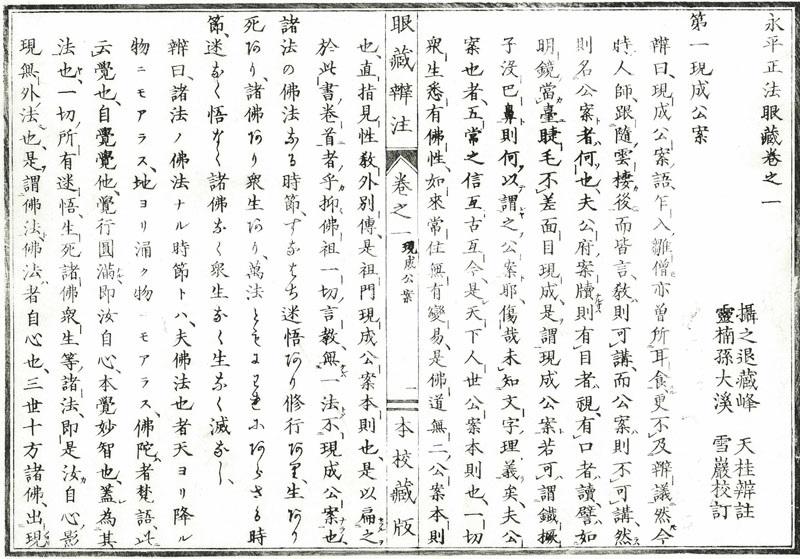 永平正法眼藏卷之一
攝之退藏峰　天桂辨註
靈楠孫大溪　雪巖校訂
第一現成公案
辨曰、現成公案語、乍入雛僧亦曾所耳食、更不及辨議、然今
時人師、跟隨雲棲後而皆言、敎則可講、而公案則不可講、然
則名公案者何也、夫公府案牘、則有目者視、有口者讀、譬如
明鏡當臺、睫毛不差、面目現成、是謂現成公案、若可謂鐵橛
子沒巴鼻、則何以謂之公案耶、傷哉未知文字理義矣、夫公
案也者、五常之信、互古互今、是天下人世公案本則也、一切
衆生悉有佛性、如來常住無有變易、是佛道無二公案本則
也、直指見性敎外別傳、是祖門現成公案本則也、是以扁之
於此書卷首者乎、抑佛祖一切言敎、無一法不現成公案也
諸法の佛法なる時節、すなはち迷悟あり修行あり、生あり
死あり、諸佛あり衆生あり、萬法ともにわれにあらさる時
節、迷なく悟なく諸佛なく衆生なく生なく滅なし、
辨曰、諸法ノ佛法ナル時節トハ、夫佛法也者天ヨリ降ル
物ニモアラス、地ヨリ涌ク物ニモアラス、佛陀者梵語、此
云覺也、自覺覺他、覺行圓滿、即汝自心、本覺妙智也、蓋為其
法也、一切所有迷悟生死諸佛衆生等、諸法即是汝自心影
現無外法也、是謂佛法、佛法者自心也、三世十方諸佛、出現
眼藏辨注　卷之一　現成公案　一　本校藏版